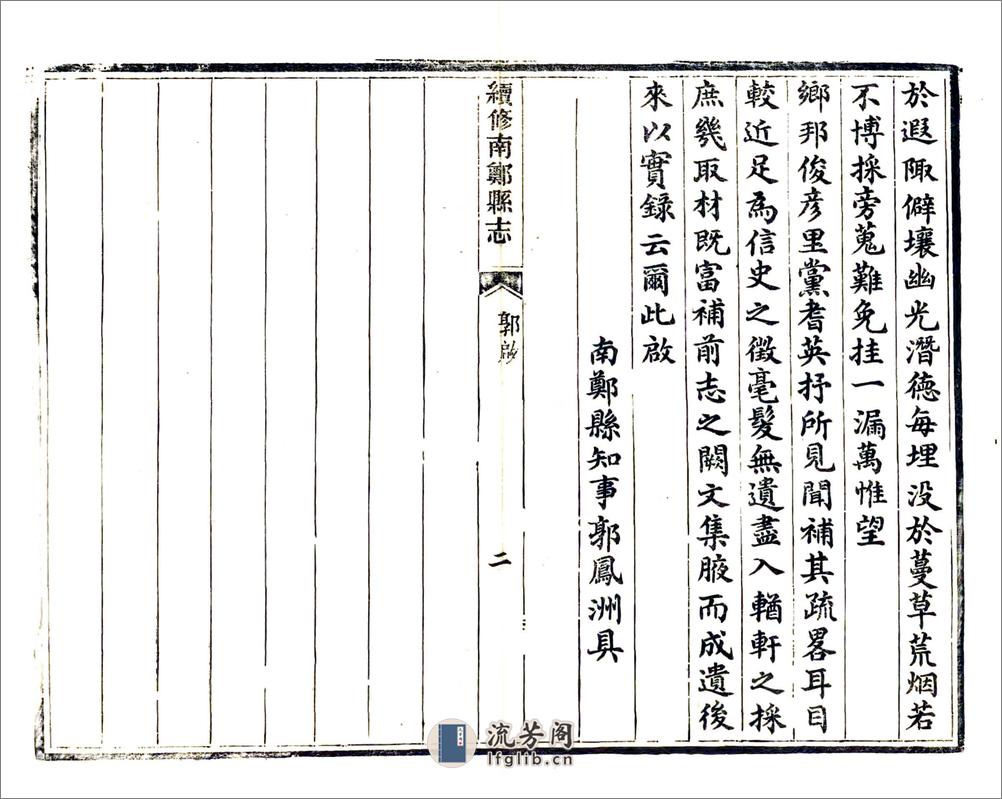 於遐陬僻壤幽光潛德每埋没於蔓草荒烟若
不博採旁蒐難免挂一漏萬惟望
鄉邦俊彦里黨耆英抒所見聞補其疏畧耳目
較近足為信史之徵毫髮無遺盡入輶軒之採
庶幾取材既富補前志之闕文集腋而成遺後
來以實録云爾此啟
南鄭縣知事郭鳳洲具
續修南鄭縣志
郭啟
二
流芳阁
lfglib.cn